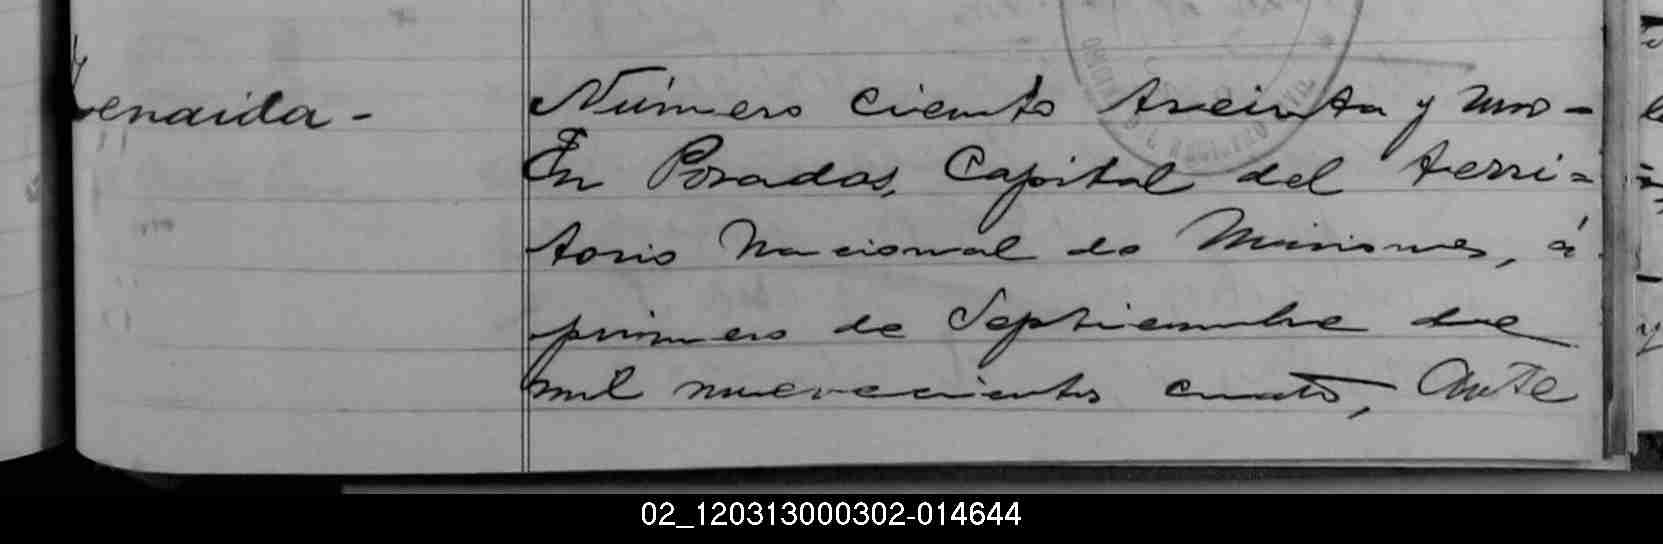 Zenaida -
Número ciento treinta y uno -
En Posadas, Capital del terri=
torio Nacional de Misiones, á
primero de Septiembre de
mil novecientos cuatro, Ante
02_120313000302-014644